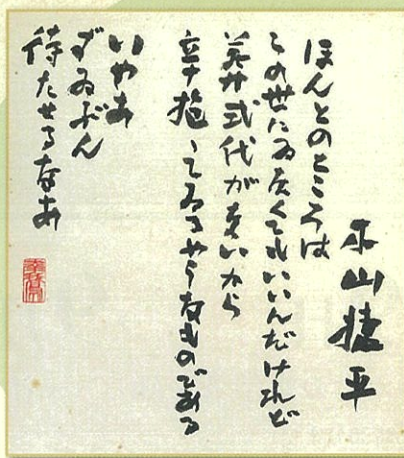 木山捷平
ほんとのところは
この世にゐなくてもいいんだけれど
葬式代がないから
辛抱してゐるやうなものである
いやあ
ずゐぶん
待たせるなあ